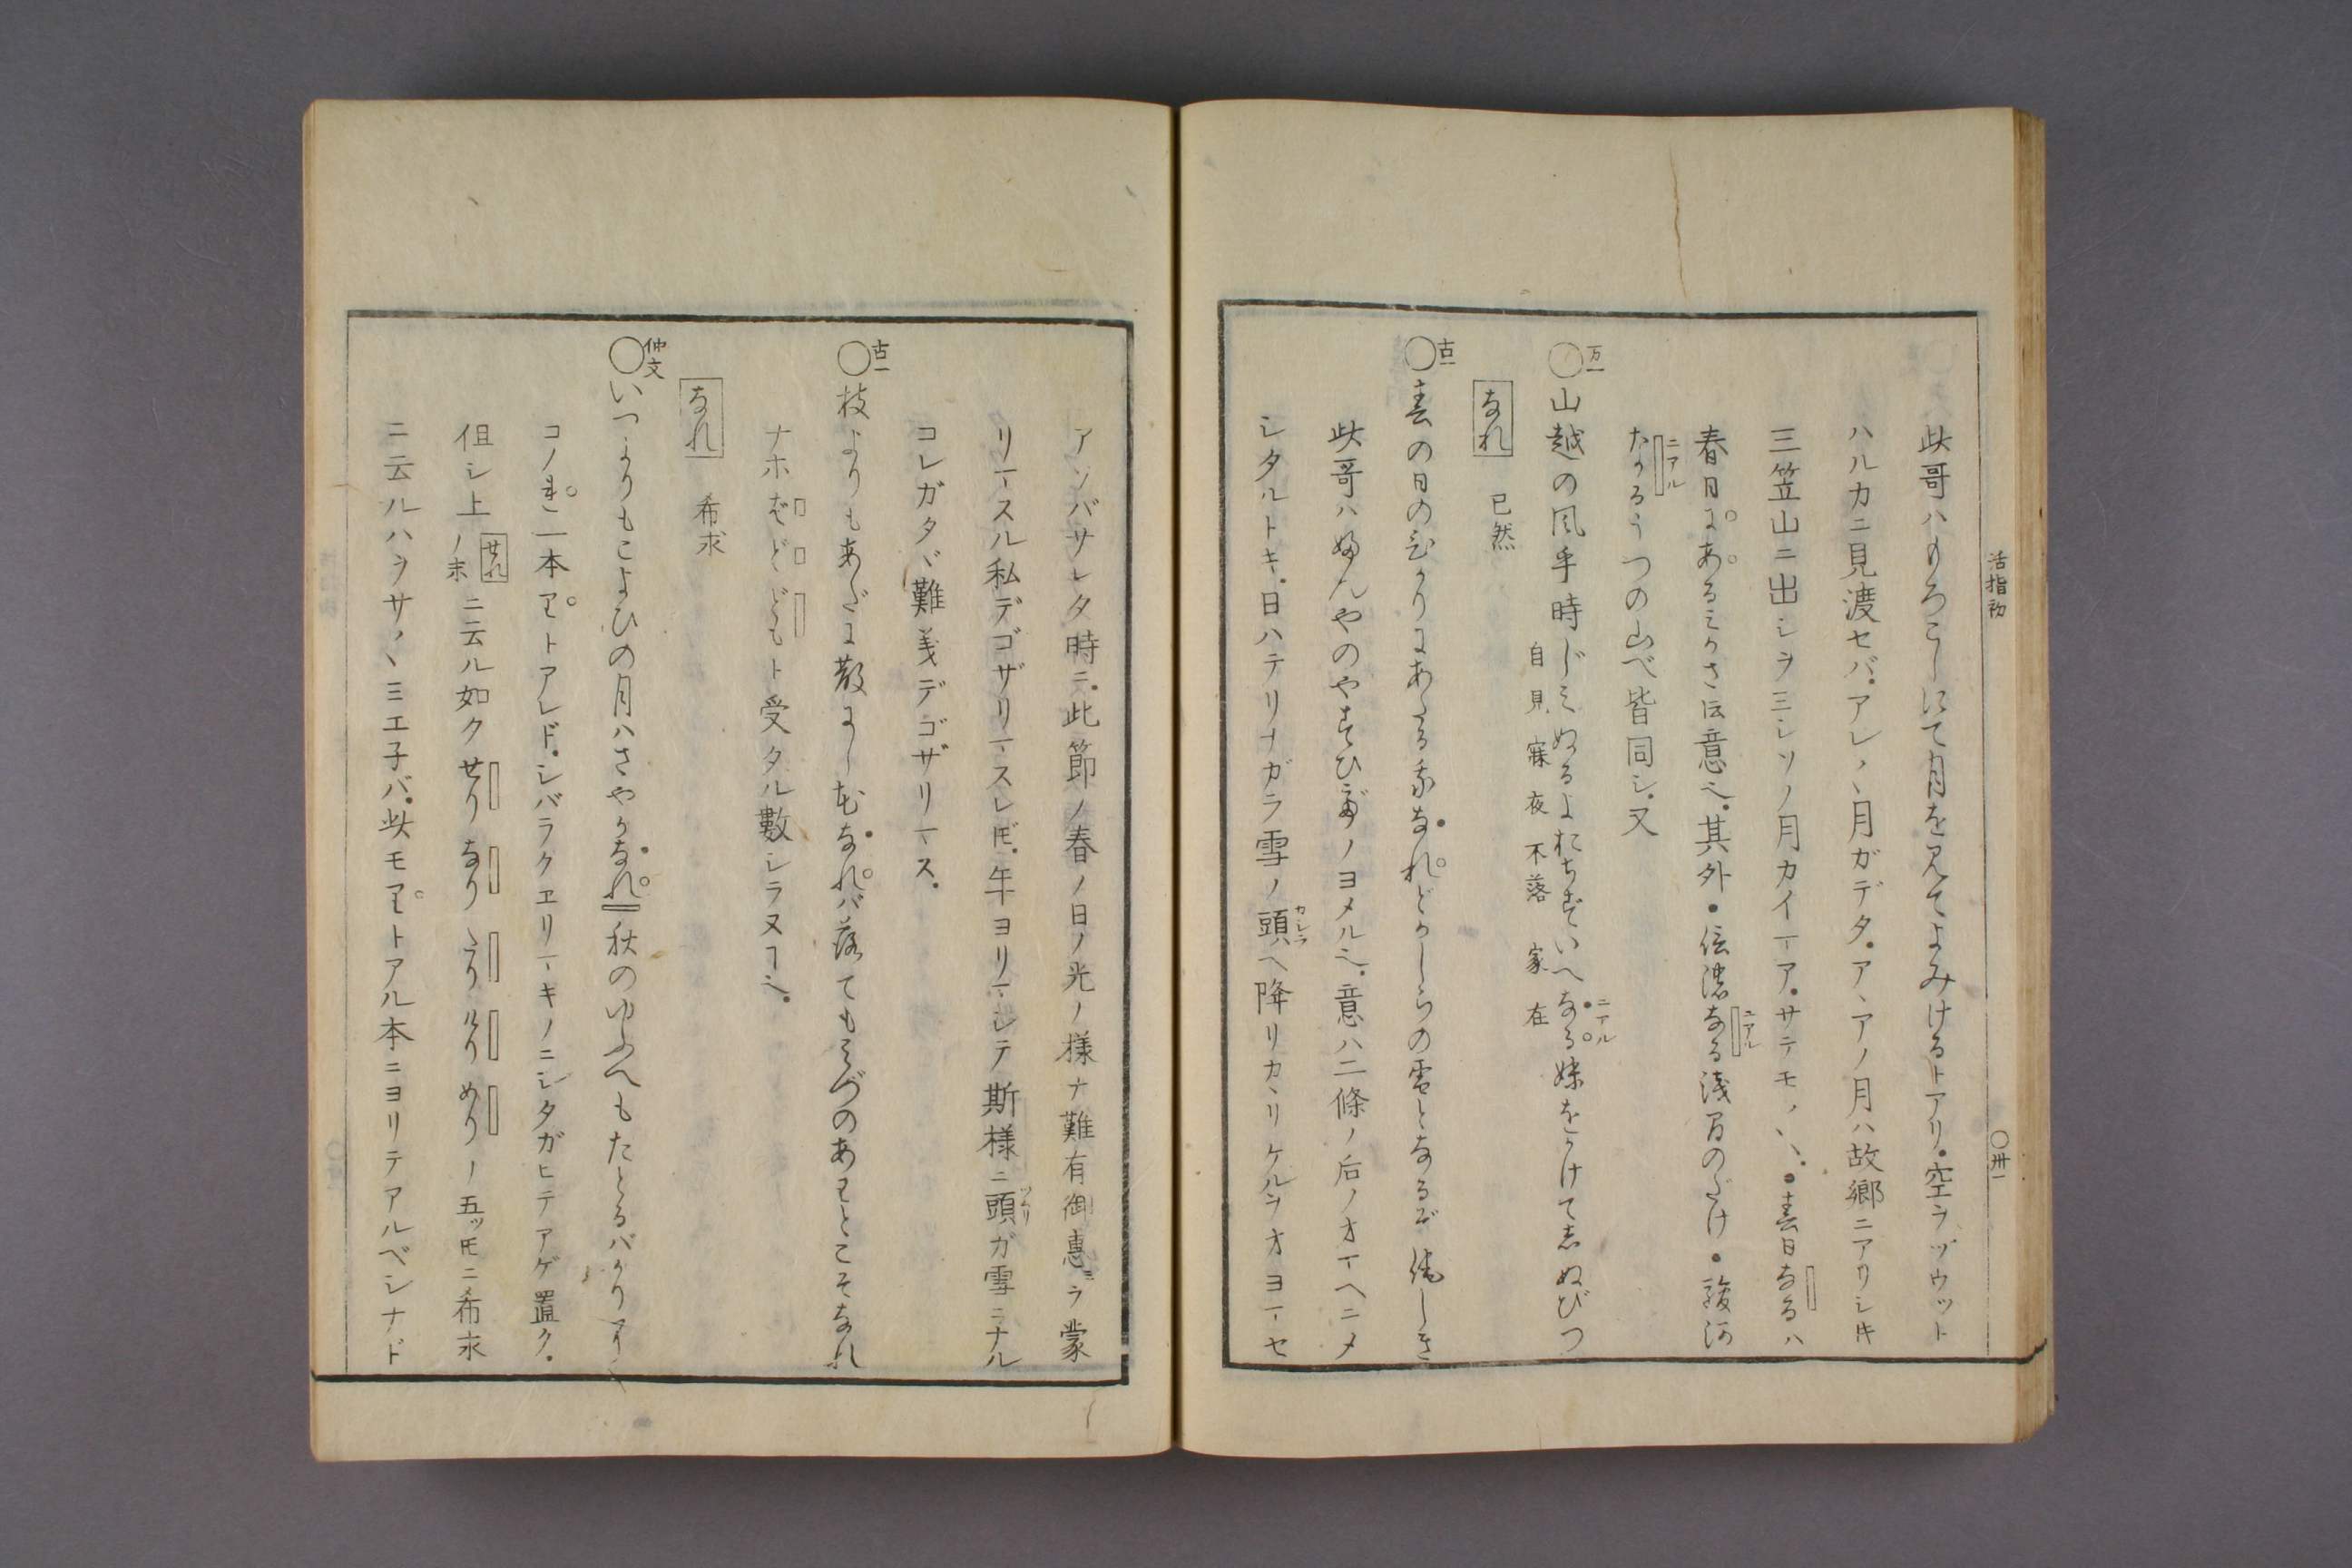 活指初
〇卅一
此哥ハもろこしにて月を見てよみけるトアリ。空ヲヅウツト
ハルカニ見渡セバ。アレヽヽ月ガデタ。アヽアノ月ハ故郷ニアリシ時
三笠山ニ出シヲミシソノ月カイマア。サテモヽヽヽ。・春日なるハ
春日にあるミかさト云意也。其外・信濃なる浅間のだけ・駿河
ニアル
なるうつの山べ皆同シ。又
ニアル
万一
〇山越の風乎時じみぬるよおちずいへなる妹をかけて志ぬびつ
ニアル
自見 寐夜不落 家在
なれ 已然
古一
〇春の日のひかりにあたる我なれどかしらの雪となるぞ侘しき
此哥ハ婦んやのやすひでノヨメル也。意ハ二條ノ后ノオマヘニメ
シタルトキ。日ハテリナガラ雪ノ頭ヘ降リカヽリケルヲオヨマセ
カシラ
アソバサレタ時ニ。此節ノ春ノ日ノ光ノ様ナ難有御恵ミヲ蒙
リマスル私デゴザリマスレドモ。年ヨリマシテ斯様ニ頭ガ雪ニナル
ツムリ
コレガタヾ難義デゴザリマス。
古一
〇枝よりもあだに散にし花なれバ落てもみづのあわとこそなれ
ナホばどどもト受タル數シラヌコト也。
なれ 希求
仲文
〇いつよりもこよひの月ハさやかなれ秋のゆふへもたとるバかりに
コノれ一本わトアレド。シバラクヱリマキノニシタガヒテアゲ置ク。
但シ上ノせれノ末ニ云ル如クせりなりたりけりめりノ五ツトモニ希求
ニ云ルハヲサヽヽミエ子バ。此モわトアル本ニヨリテアルベシナド